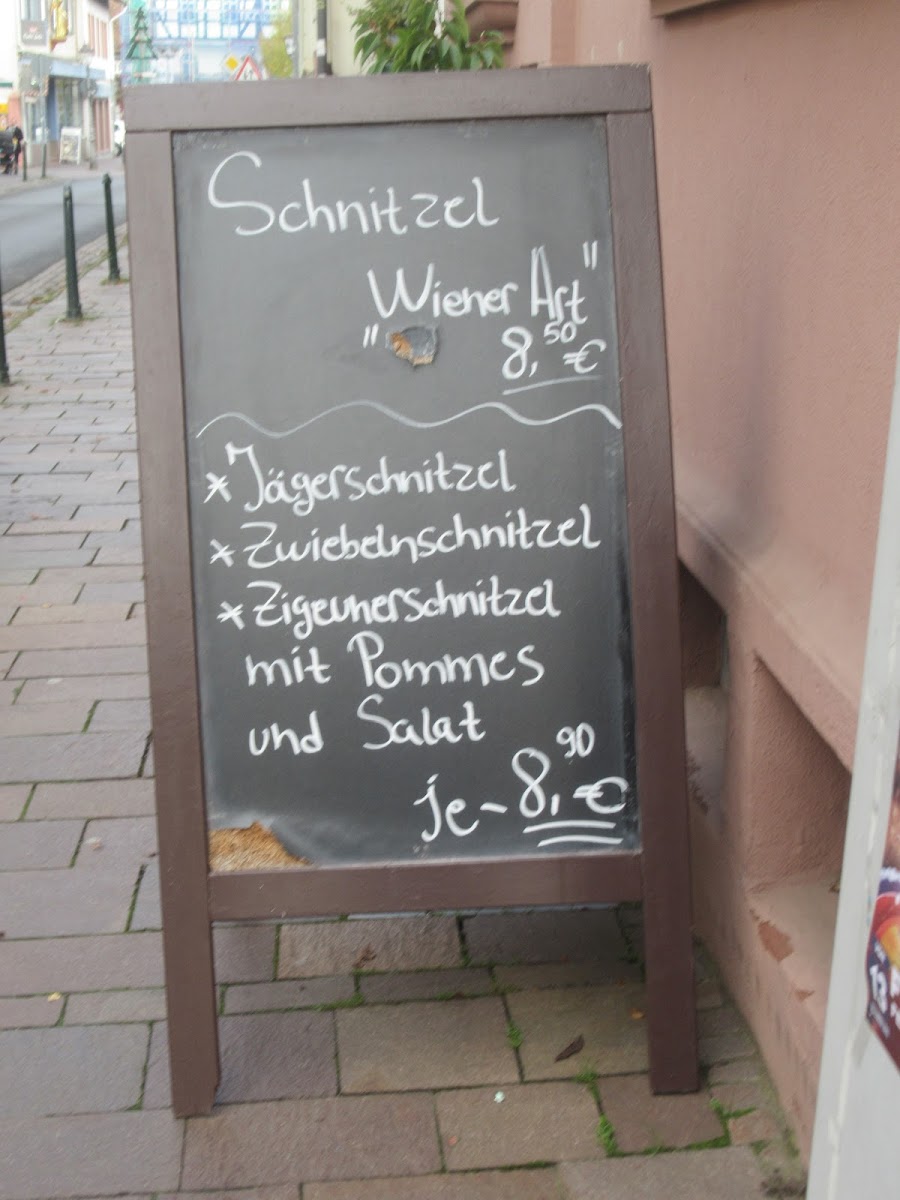 Schnitzel
"Wiener Art"
8,50 €
* Jägerschnitzel
* Zwiebelnschnitzel
* Zigeunerschnitzel
mit Pommes
und Salat
je - 8,90 €
13